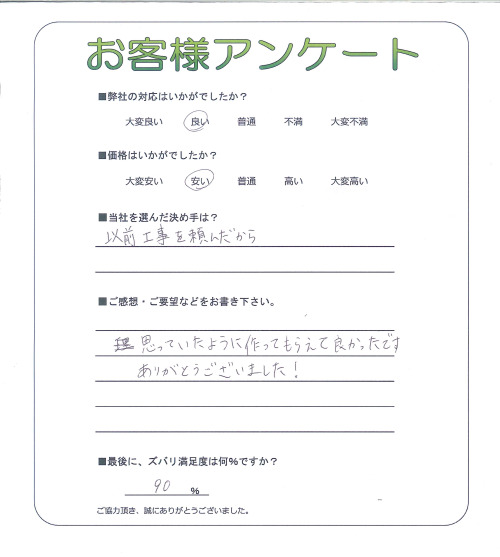 お客様アンケート
■弊社の対応はいかがでしたか？
大変良い 良い 普通 不満 大変不満
■価格はいかがでしたか？
大変安い 安い 普通 高い 大変高い
■当社を選んだ決め手は？
以前工事を頼んだから
■ご感想・ご要望などをお書き下さい。
思っていたように作ってもらえて良かったです
ありがとうございました！
■最後に、ズバリ満足度は何%ですか？
90 %
ご協力頂き、誠にありがとうございました。